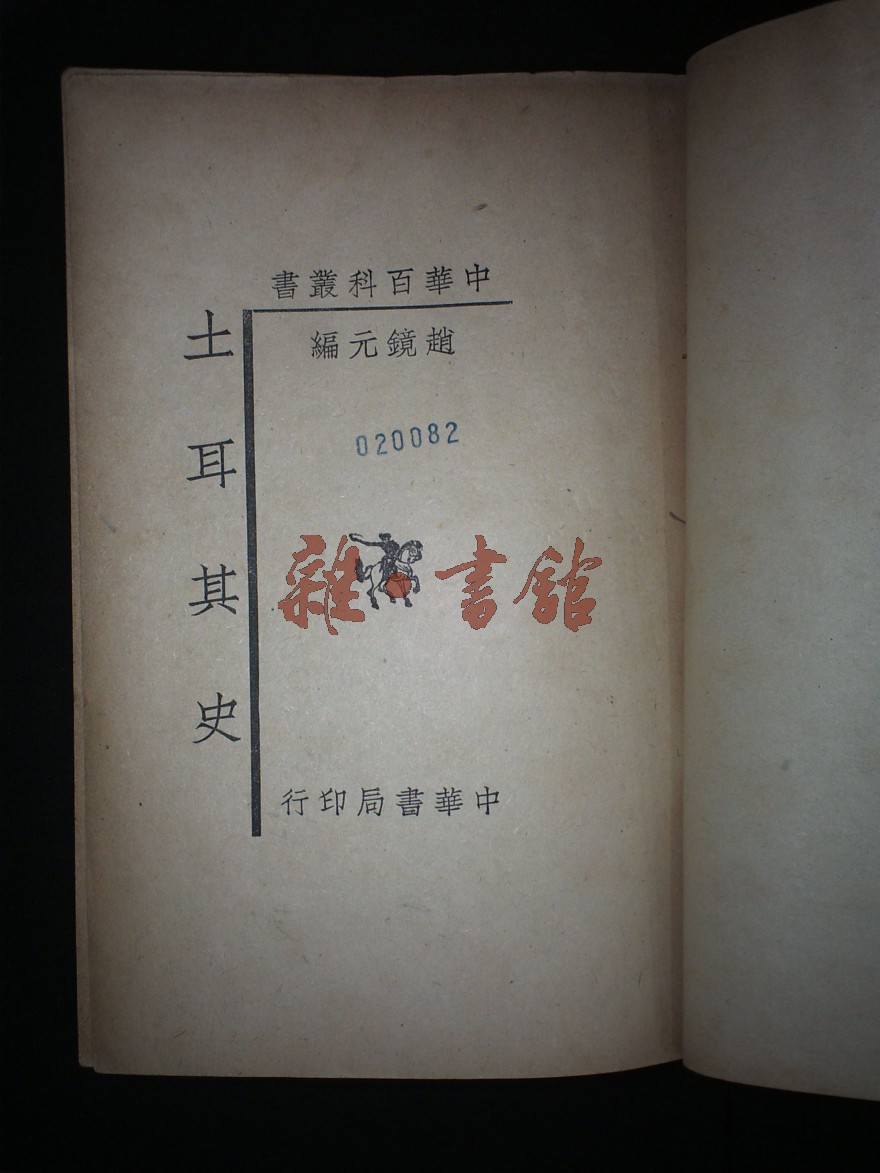 中華百科叢書
趙鏡元編
土耳其史
020082
雜·書館
中華書局印行